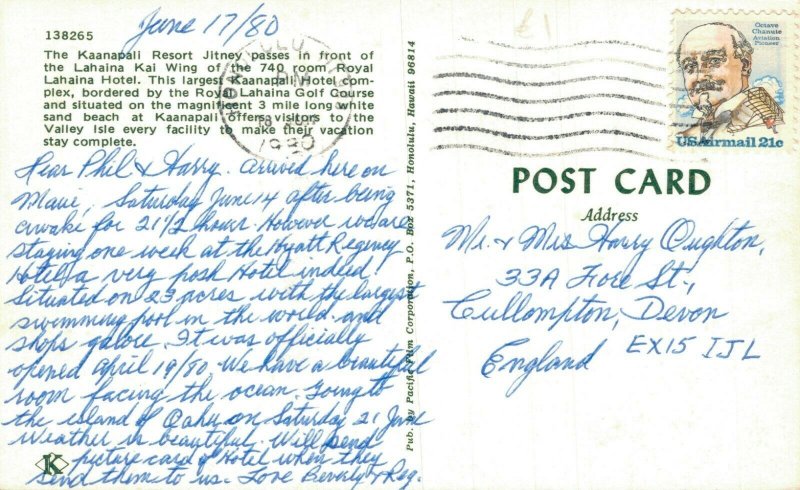 June 17/80
138265
The Kaanapali Resort Jitney passes in front of
the Lahaina Kai Wing of the 740 room Royal
Lahaina Hotel. This largest Kaanapali Hotel com-
plex, bordered by the Royal Lahaina Golf Course
and situated on the magnificent 3 mile long white
sand beach at Kaanapali offers visitors to the
Valley Isle every facility to make their vacation
stay complete.
Dear Phil & Harry. Arrived here on
Maui, Saturday June 14 after being
awake for 21 1/2 hours. However we are
staying one week at the Hyatt Regency
Hotel a very posh Hotel indeed!
Situated on 23 acres with the largest
swimming pool in the world and
shops galore. It was officially
opened April 19/80. We have a beautiful
room facing the ocean. Going to
the island of Oahu on Saturday 21 June
Weather is beautiful. Will send
picture card of Hotel when they
send them to us. Love Beverly & Reg.
K
Pub. by Pacific Film Corporation, P.O. Box 5371, Honolulu, Hawaii 96814
1980
£1
Octave
Chanute
Aviation
Pioneer
USAirmail 21c
POST CARD
Address
Mr. & Mrs Harry Oughton,
33A Fore St.,
Cullompton, Devon
England EX15 1JL